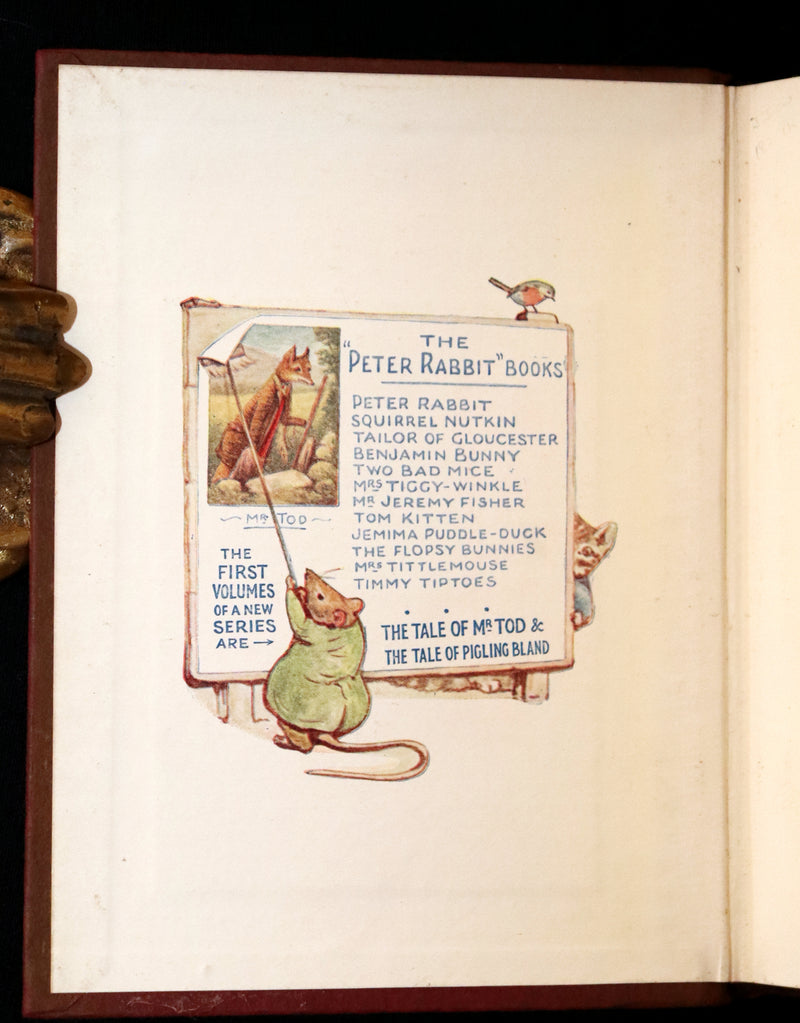 THE
"PETER RABBIT" BOOKS
PETER RABBIT
SQUIRREL NUTKIN
TAILOR OF GLOUCESTER
BENJAMIN BUNNY
TWO BAD MICE
MRS TIGGY-WINKLE
MR JEREMY FISHER
TOM KITTEN
JEMIMA PUDDLE-DUCK
THE FLOPSY BUNNIES
MRS TITTLEMOUSE
TIMMY TIPTOES
MR TOD
THE
FIRST
VOLUMES
OF A NEW
SERIES
ARE →
THE TALE OF MR TOD &
THE TALE OF PIGLING BLAND